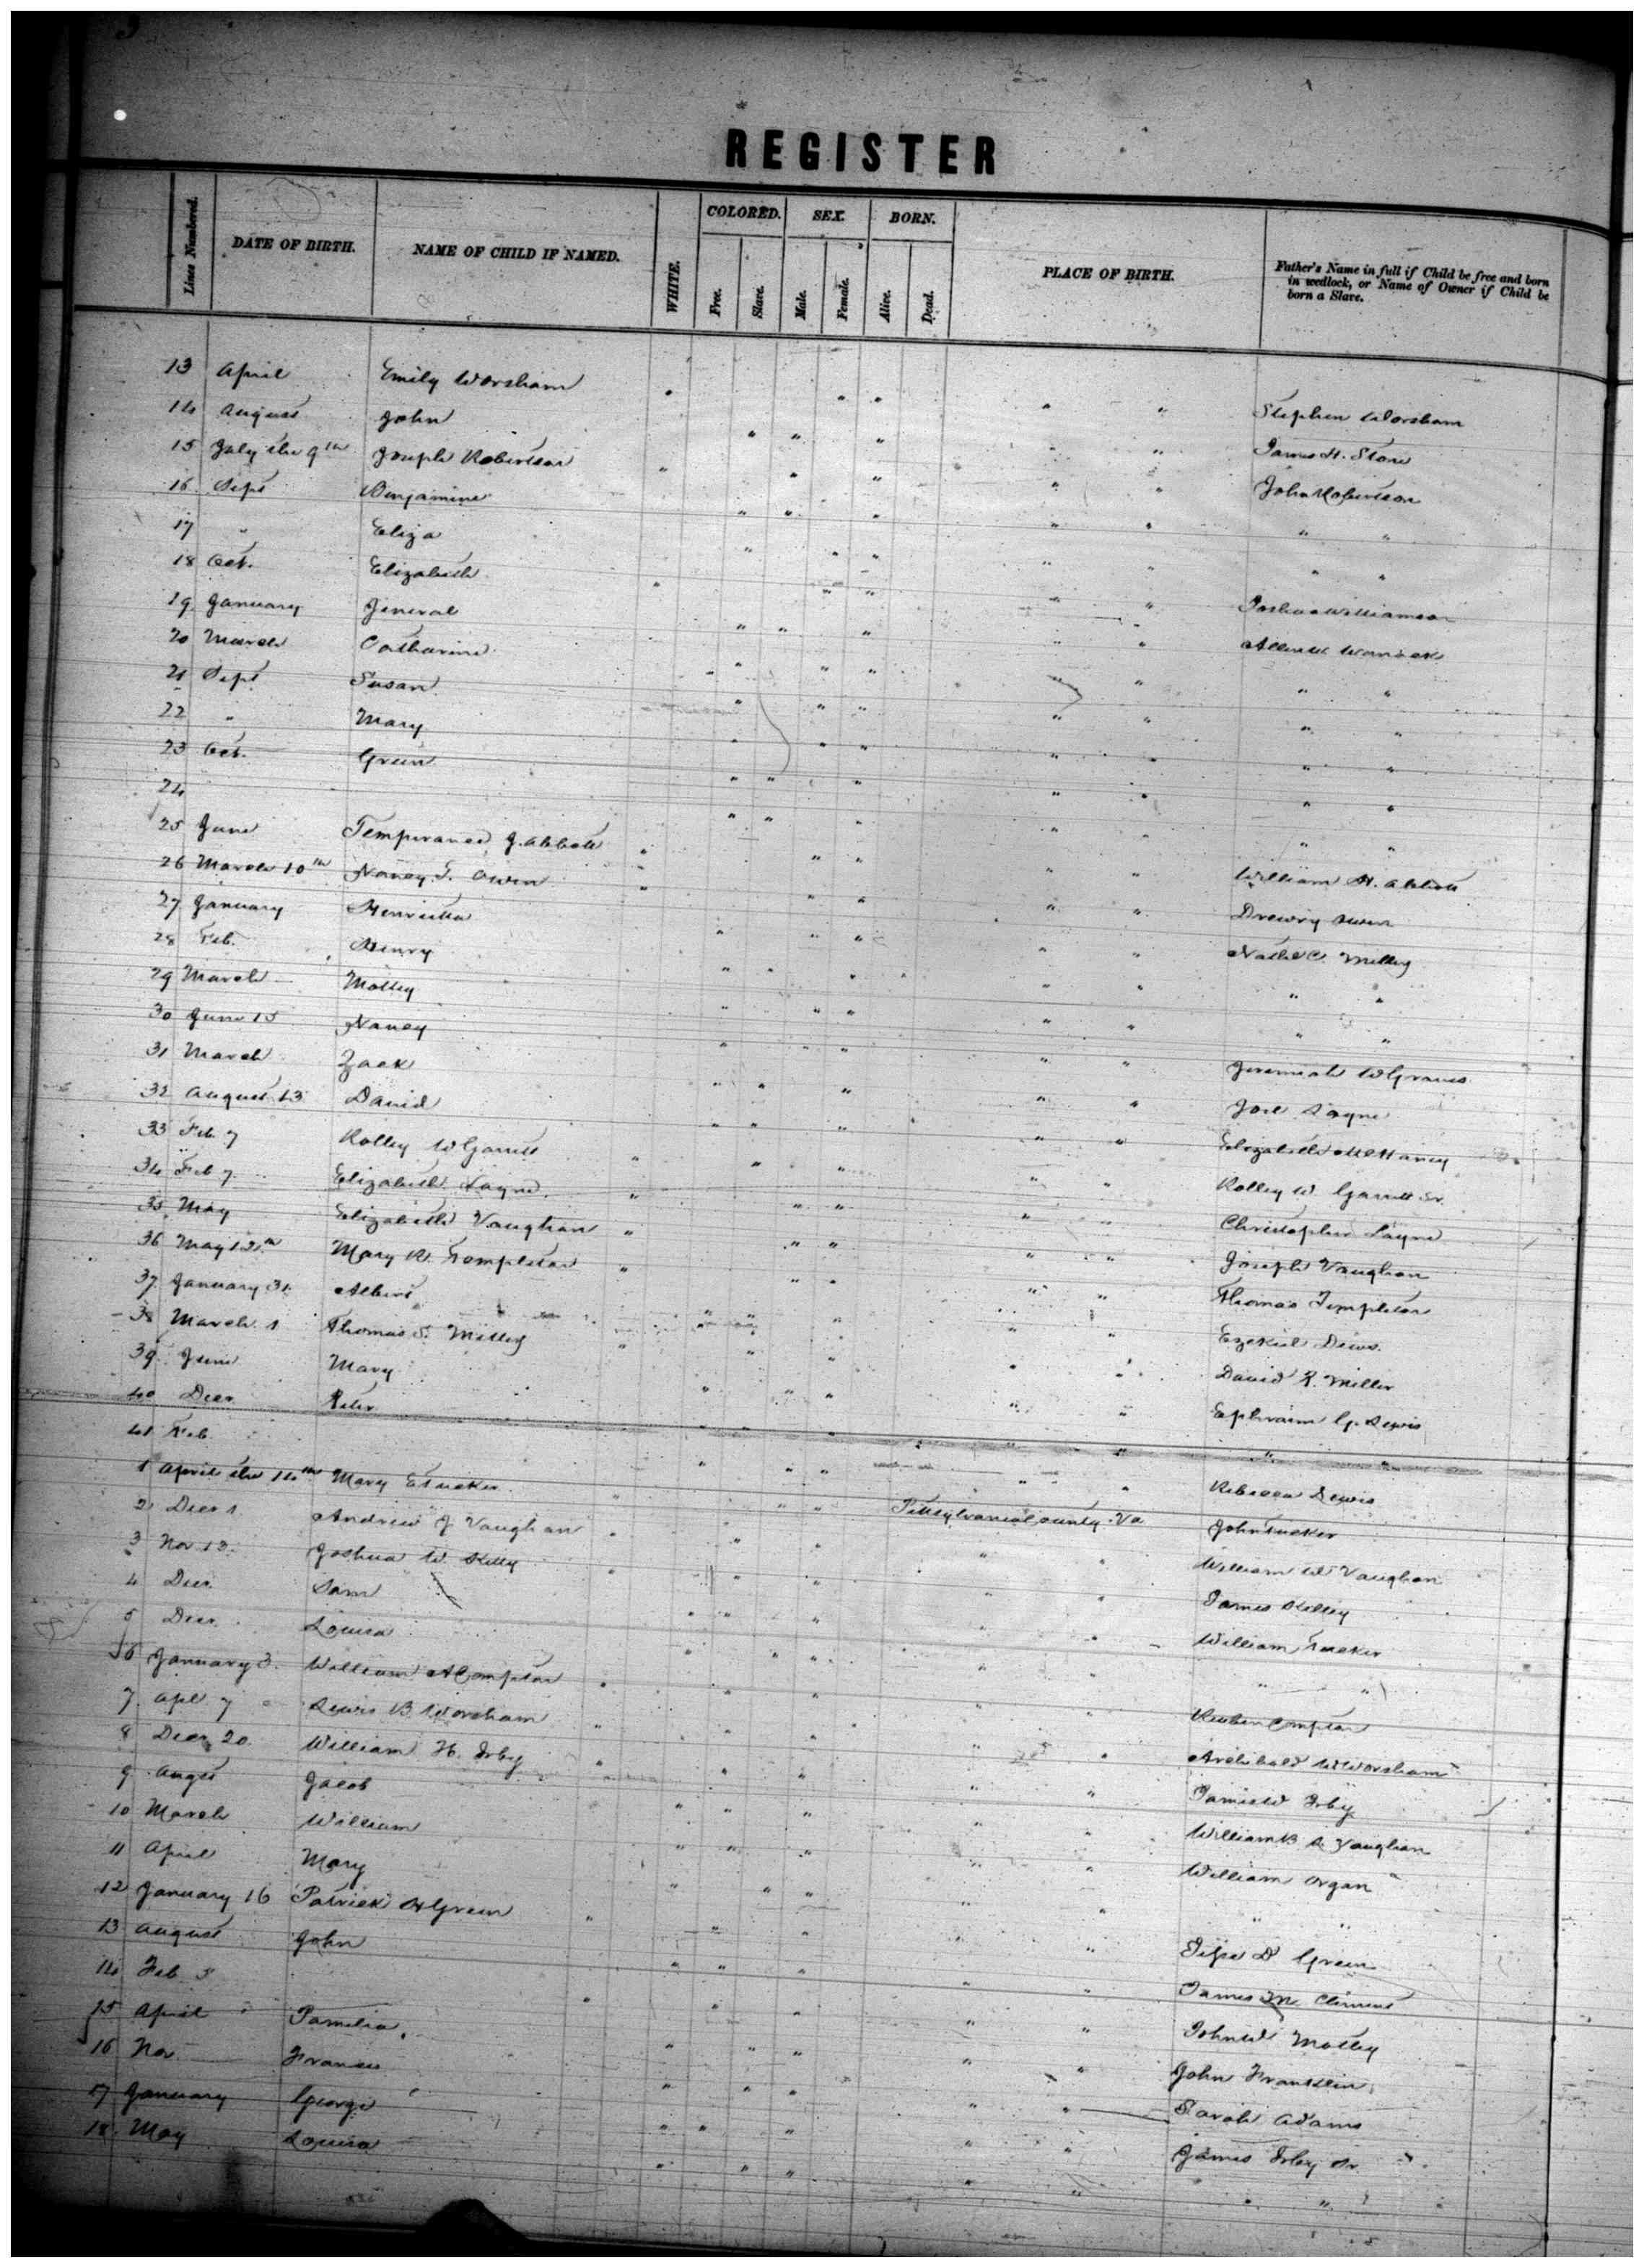 3
REGISTER
Lines Numbered. DATE OF BIRTH. NAME OF CHILD IF NAMED. WHITE. COLORED. Free. Slave. SEX. Male. Female. BORN. Alive. Dead. PLACE OF BIRTH. Father's Name in full if Child be free and born in wedlock, or Name of Owner if Child be born a Slave.
13 April Emily Worsham " " " " " Stephen Worsham
14 August John " " " " " James H. Stone
15 July the 9th Joseph Robertson " " " " " John Robertson
16 Sept Benjamine " " " " " " "
17 " Eliza " " " " " " "
18 Oct. Elizabeth " " " " " Joshua Williamson
19 January Jeneral " " " " " Allen W. Womack
20 March Catharine " " " " " " "
21 Sept Susan " " " " " " "
22 " Mary " " " " " " "
23 Oct. Green " " " " " " "
24 " " " " " " "
25 June Temperance J. Abbott " " " " " William H. Abbott
26 March 10th Nancy T. Owen " " " " " Drewry Owen
27 January Henrietta " " " " " Nathl C. Motley
28 Feb. Henry " " " " " " "
29 March Motley " " " " " " "
30 June 15 Nancy " " " " " Jeremiah W Graves
31 March Zack " " " " " Joel Layne
32 August 13 David " " " " " Elizabeth
33 Feb 7 Rolley W Garrett " " " " " Rolley W. Garrett Sr.
34 Feb 7 Elizabeth Layne " " " " " Christopher Layne
35 May Elizabeth Vaughan " " " " " Joseph Vaughan
36 May 12th Mary R. Templeton " " " " " Thomas Templeton
37 January 31 Albert " " " " " Ezekiel Dews.
38 March 1 Thomas S. " " " " " David R. Miller
39 June Mary " " " " " Ephraim G. Lewis
40 Decr " " " " " " "
41 Feb. " " " " " Rebecca Lewis
1 April the 14th Mary E Tucker " " " Pittsylvania County Va John Tucker
2 Decr 1 Andrew J Vaughan " " " " " William W Vaughan
3 Nov 13. Joshua W. Kelly " " " " " James Kelley
4 Decr. Sam " " " " William Tucker
5 Decr. Louisa " " " " " "
6 January 3. William A Compton " " " " " Reuben Compton
7 Apl 7 Lewis B. Worsham " " " " Archibald W Worsham
8 Decr 20. William H. Irby " " " " James W Irby
9 Augst Jacob " " " " " William B A Vaughan
10 March William " " " " " William Organ
11 April Mary " " " " " " "
12 January 16 Patrick H Green " " " " " D Green
13 August John " " " " " James M. Clement
14 Feb 5 " " " " " John W Motley
15 April Pamelia " " " " " John Franklin
16 Nov Frances " " " " " Sarah Adams
17 January George " " " " " James Irby Sr
18 May Louisa " " " " " " "